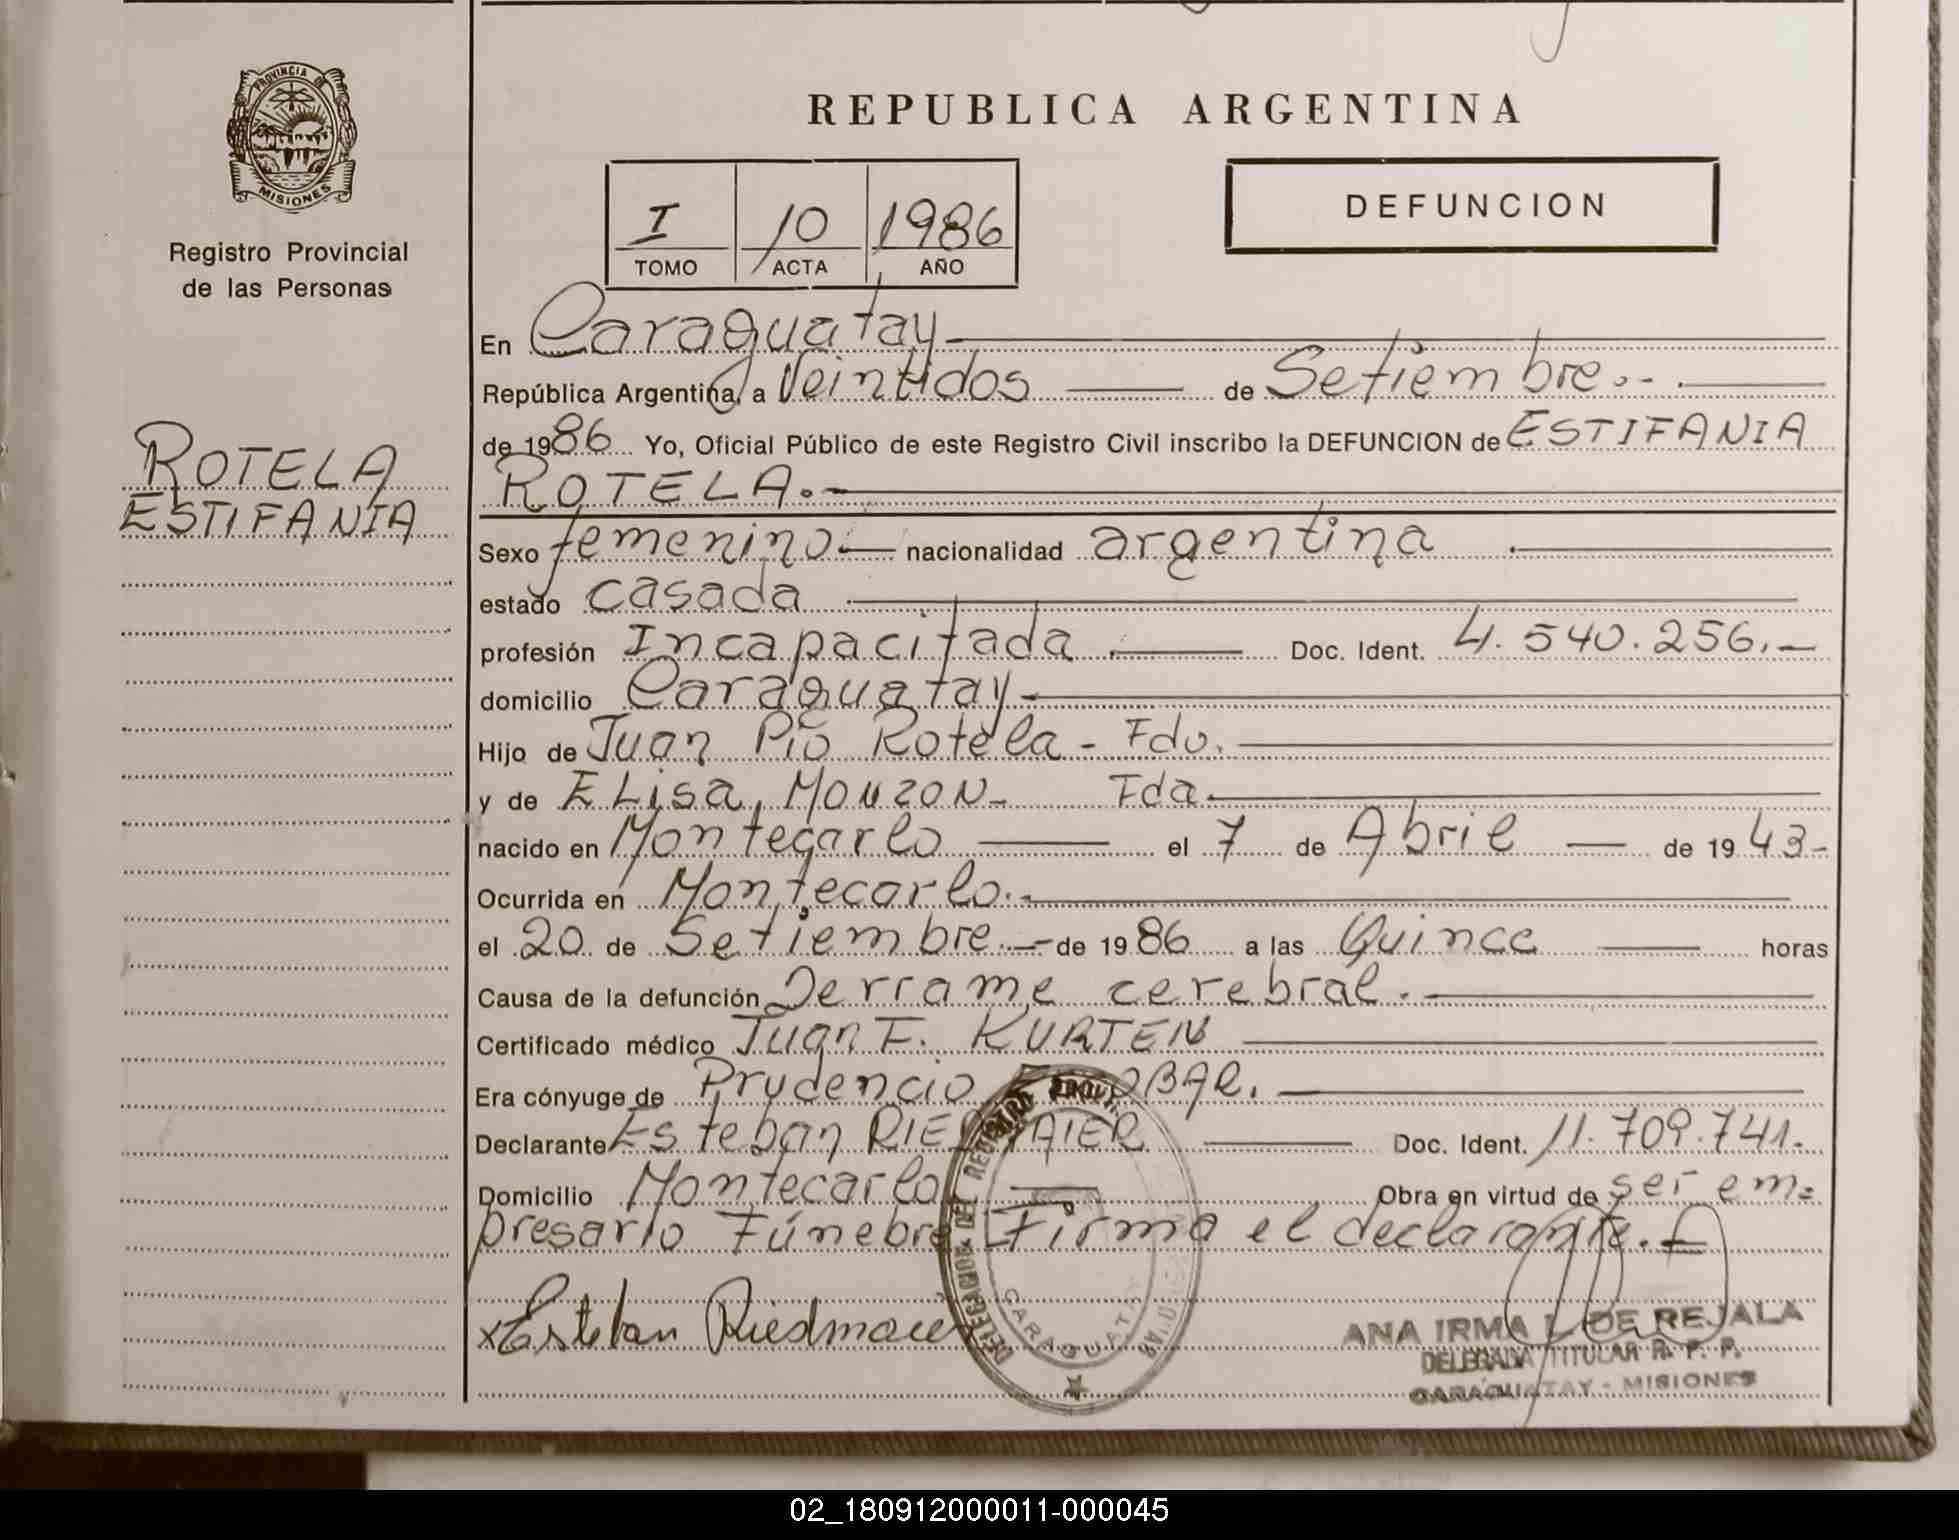 PROVINCIA DE
MISIONES
Registro Provincial
de las Personas
ROTELA
ESTIFANIA
REPUBLICA ARGENTINA
I 10 1986
TOMO ACTA AÑO
DEFUNCION
En Caraguatay
República Argentina, a Veintidos de Setiembre.-
de 1986 Yo, Oficial Público de este Registro Civil inscribo la DEFUNCION de ESTIFANIA
ROTELA.-
Sexo femenino nacionalidad argentina
estado casada
profesión Incapacitada Doc. Ident. 4.540.256.-
domicilio Caraguatay-
Hijo de Juan Pío Rotela - Fdo.
y de ELisa, MONZON- Fda.
nacido en Montecarlo el 7 de Abril de 1943-
Ocurrida en Montecarlo.-
el 20 de Setiembre.- de 1986 a las Quince horas
Causa de la defunción Derrame cerebral.
Certificado médico Juan F. KURTEN
Era cónyuge de Prudencio
Declarante Esteban Doc. Ident. 11.709.741.-
Domicilio Montecarlo Obra en virtud de ser em=
presario Fúnebre Firma el declarante.-
x Esteban Riedmaier
DELEGACION DEL REGISTRO
CARAGUATAY
ANA IRMA L. DE REJALA
DELEGADA TITULAR R. P. P.
CARAGUATAY - MISIONES
02_180912000011-000045